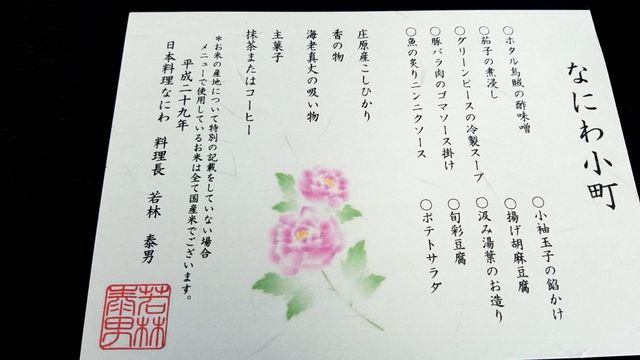 なにわ小町
○ホタル烏賊の酢味噌
○茄子の煮浸し
○グリーンピースの冷製スープ
○豚バラ肉のゴマソース掛け
○魚の炙りニンニクソース
○小袖玉子の餡かけ
○揚げ胡麻豆腐
○汲み湯葉のお造り
○旬彩豆腐
○ポテトサラダ
庄原産こしひかり
香の物
海老真丈の吸い物
主菓子
抹茶またはコーヒー
*お米の産地について特別の記載をしていない場合
メニューで使用しているお米は全て国産米でございます。
平成二十九年
日本料理なにわ 料理長 若林 泰男
若林
泰男